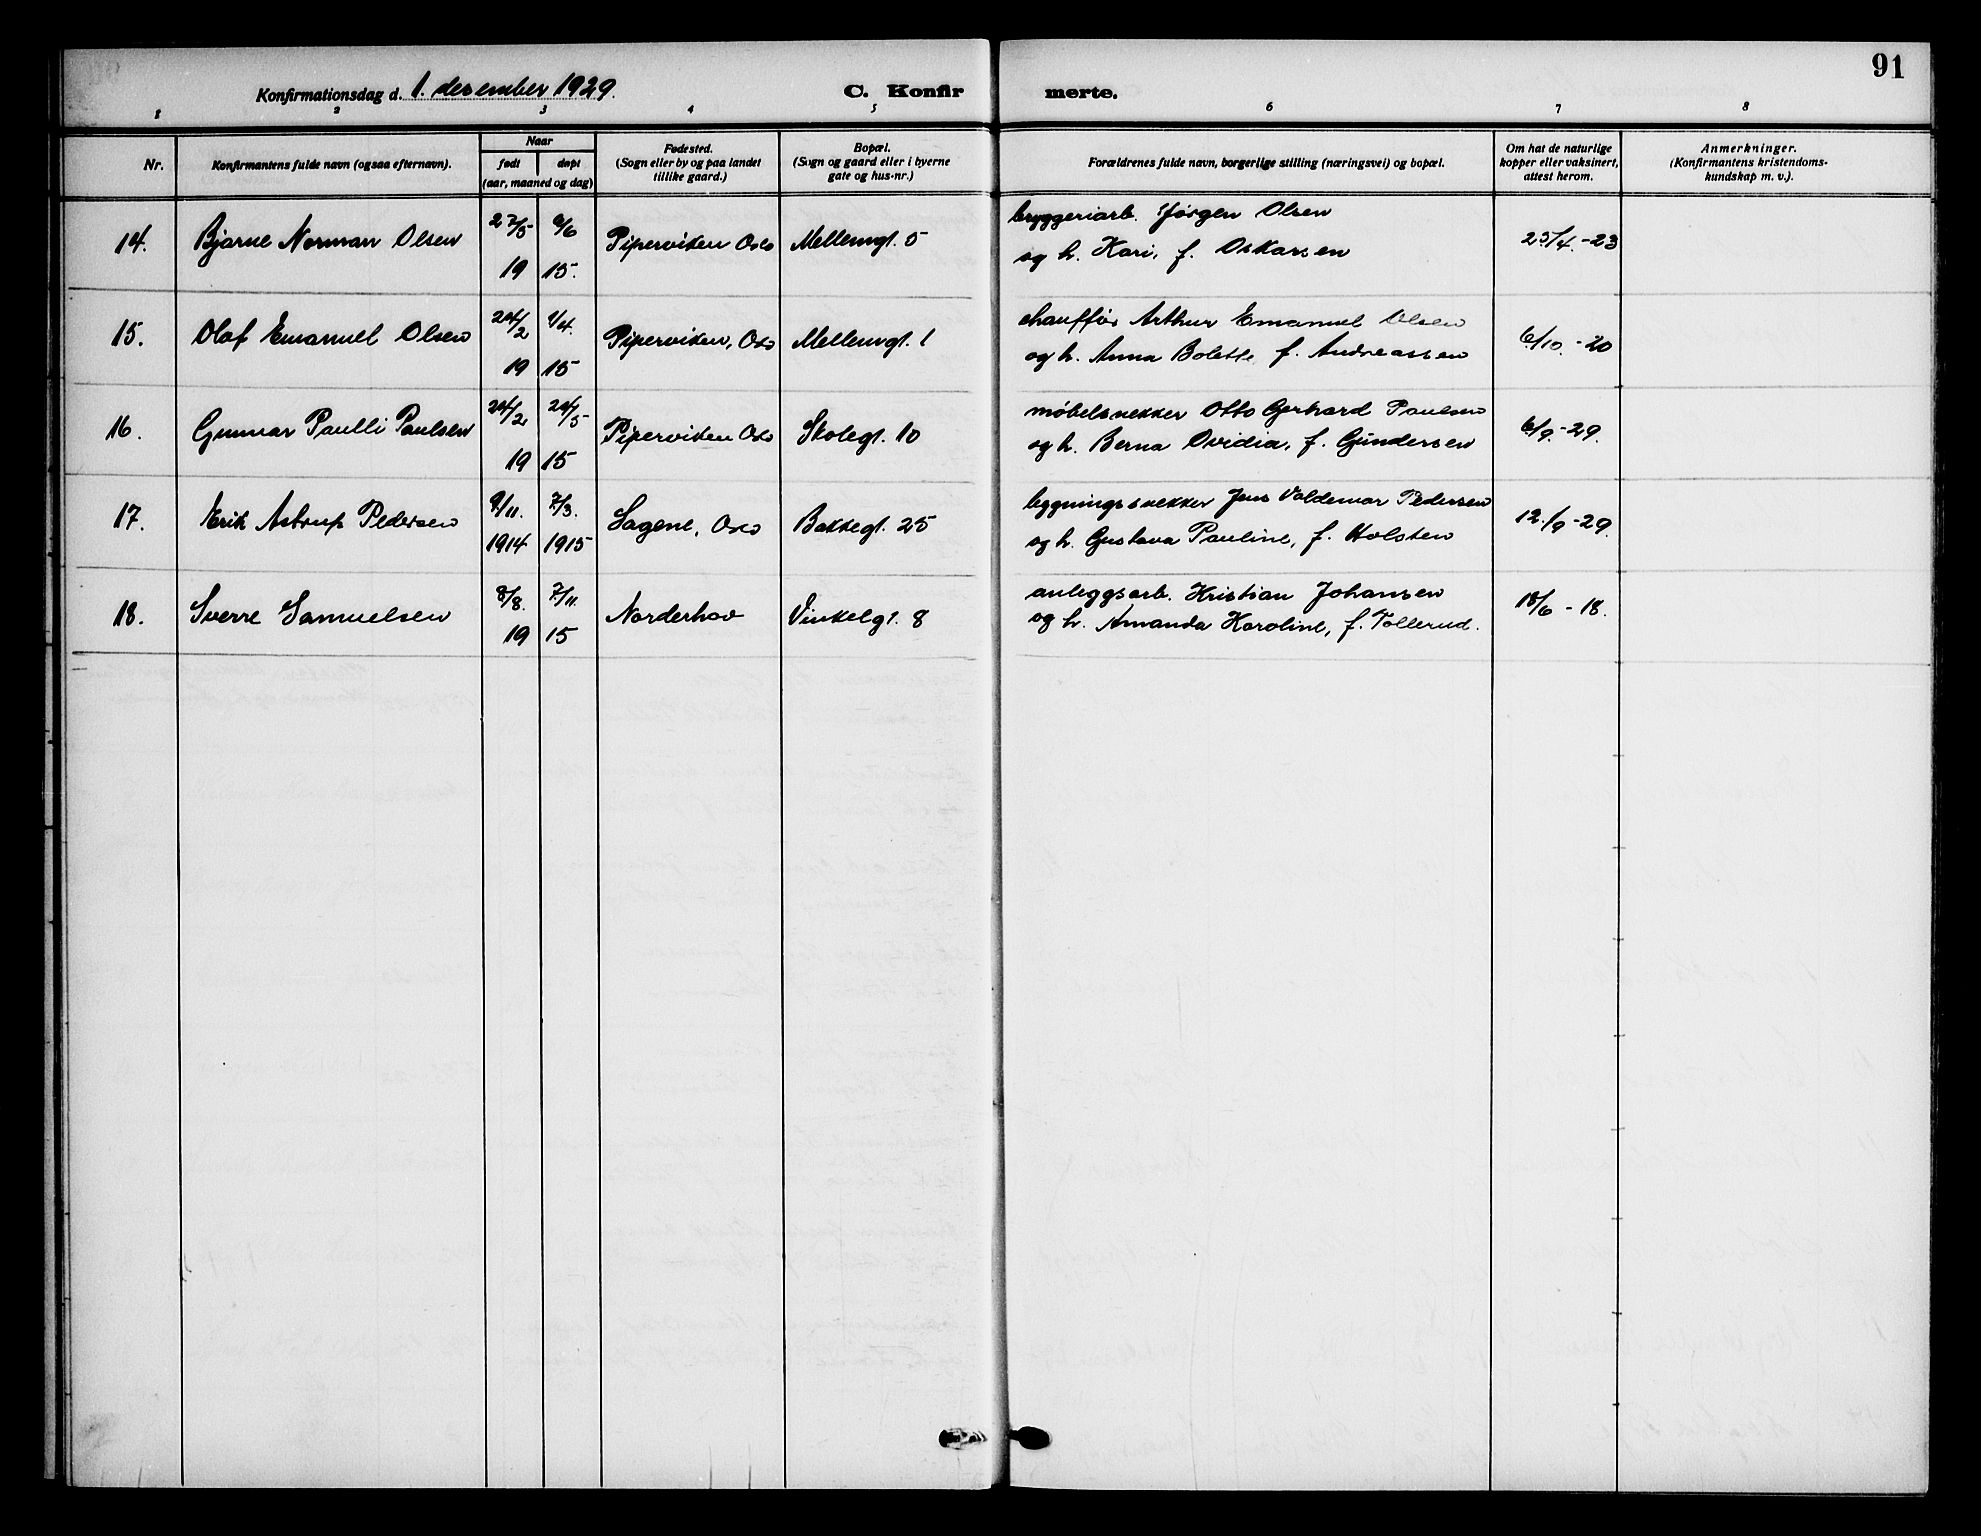 91
Konfirmationsdag d. 1. desember 1929.
C. Konfir merte.
1 2 3 4 5 6 7 8
Nr.
Konfirmantens fulde navn (ogsaa efternavn).
Naar
født døpt
(aar, maaned og dag)
Fødested.
(Sogn eller by og paa landet
tillike gaard.)
Bopæl.
(Sogn og gaard eller i byerne
gate og hus-nr.)
Forældrenes fulde navn, borgerlige stilling (næringsvei) og bopæl.
Om hat de naturlige
kopper eller vaksinert,
attest herom.
Anmerkninger.
(Konfirmantens kristendoms-
kundskap m. v.).
14. Bjarne Norman Olsen 27/5 19 6/6 15. Piperviken Oslo Mellemgt. 5
bryggeriarb. Jørgen Olsen
og h. Kari, f. Oskarsen
25/4.-23
15. Olaf Emanuel Olsen 24/2 19 4/4. 15 Piperviken, Oslo Mellemgt. 1
chauffør Arthur Emanuel Olsen
og h. Anna Bolette f. Andreassen
6/10.-20
16. Gunnar Paulli Paulsen 24/2 19 24/5 15 Piperviken Oslo Skolegt. 10
møbelsnekker Otto Gerhard Paulsen
og h. Berna Ovidia, f. Gundersen
6/9.-29.
17. Erik Astrup Pedersen 9/11. 1914 7/3. 1915 Sagene, Oslo Bakkegt. 25
bygningssnekker Jens Valdemar Pedersen
og h. Gustava Pauline, f. Holsten
12./9-29.
18. Sverre Samuelsen 8/8. 19 7/11. 15 Norderhov Vinkelgt. 8
anleggsarb. Kristian Johansen
og h. Amanda Karoline, f. Tollerud.
18/6 - 18.